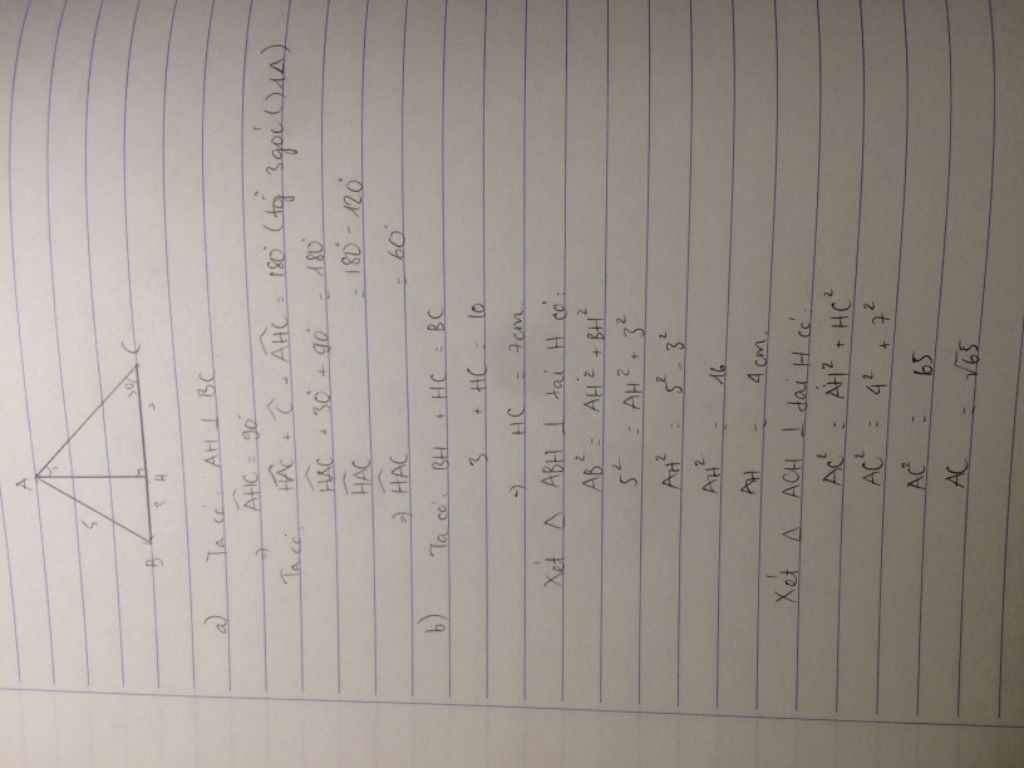 A
5
B
3
H
7
30°
C
a) Ta có: AH ⊥ BC
=> AHC = 90°
Ta có: HAC + C + AHC = 180° (tg 3 góc () 1Δ)
HAC + 30° + 90° = 180°
HAC = 180° - 120°
=> HAC = 60°
b) Ta có: BH + HC = BC
3 + HC = 10
=> HC = 7cm
Xét Δ ABH ⊥ tại H có:
AB² = AH² + BH²
5² = AH² + 3²
AH² = 5² - 3²
AH² = 16
AH = 4cm
Xét Δ ACH ⊥ tại H có:
AC² = AH² + HC²
AC² = 4² + 7²
AC² = 65
AC = √65